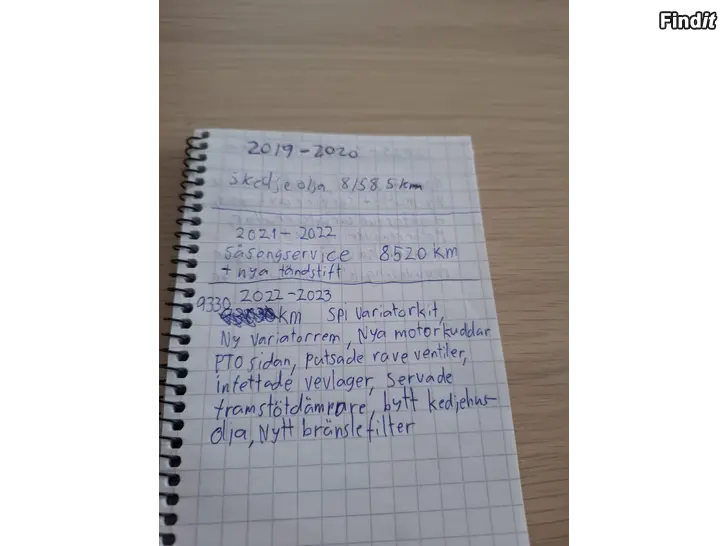 Findit
2019-2020
skedjeolja 8158.5 km
2021-2022
Säsongservice 8520 km
+ nya tändstift
2022-2023
9330 km Spi variatorkit,
Ny variatorrem, Nya motorkuddar
PTO sidan, putsade rave ventiler,
infettade vevlager, servade
framstötdämpare, bytt kedjehus-
olja, Nytt bränslefilter